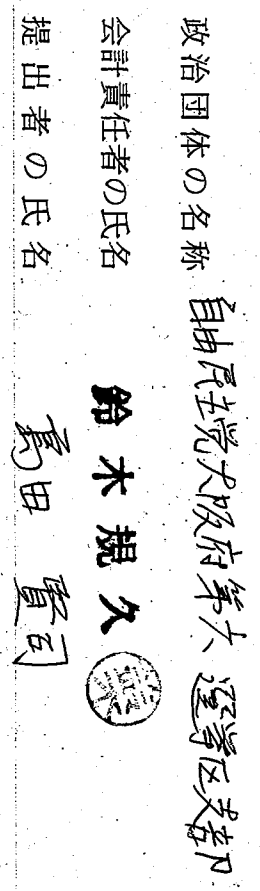 政治団体の名称 自由民主党大阪府第六選挙区支部
会計責任者の氏名 鈴木規久
提出者の氏名 高田 賢司